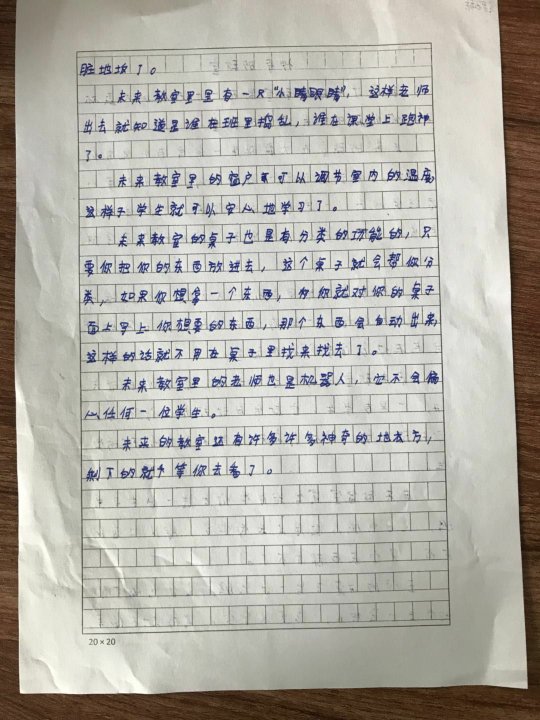 脏地板了。
未来教室里里有一只“小睛眼睛”,这样老师
出去就知道是谁在班里捣乱,谁在课堂上跑神
了。
未来教室里的窗户可可以调节室内的温度,
这样子学生就可以安心地学习了。
未来教室的桌子也是有分类的功能的,只
要你把你的东西放进去,这个桌子就会帮你分
类,如果你想拿一个东西,你就对你的桌子
面上写上你想要的东西,那个东西会自动出来,
这样的话就不用在桌子里找来找去了。
未来教室里的老师也是机器人,它不会偏
心任何一位学生。
未来的教室还有许多许多神奇的地方,
剩下的就等你去看了。
20×20